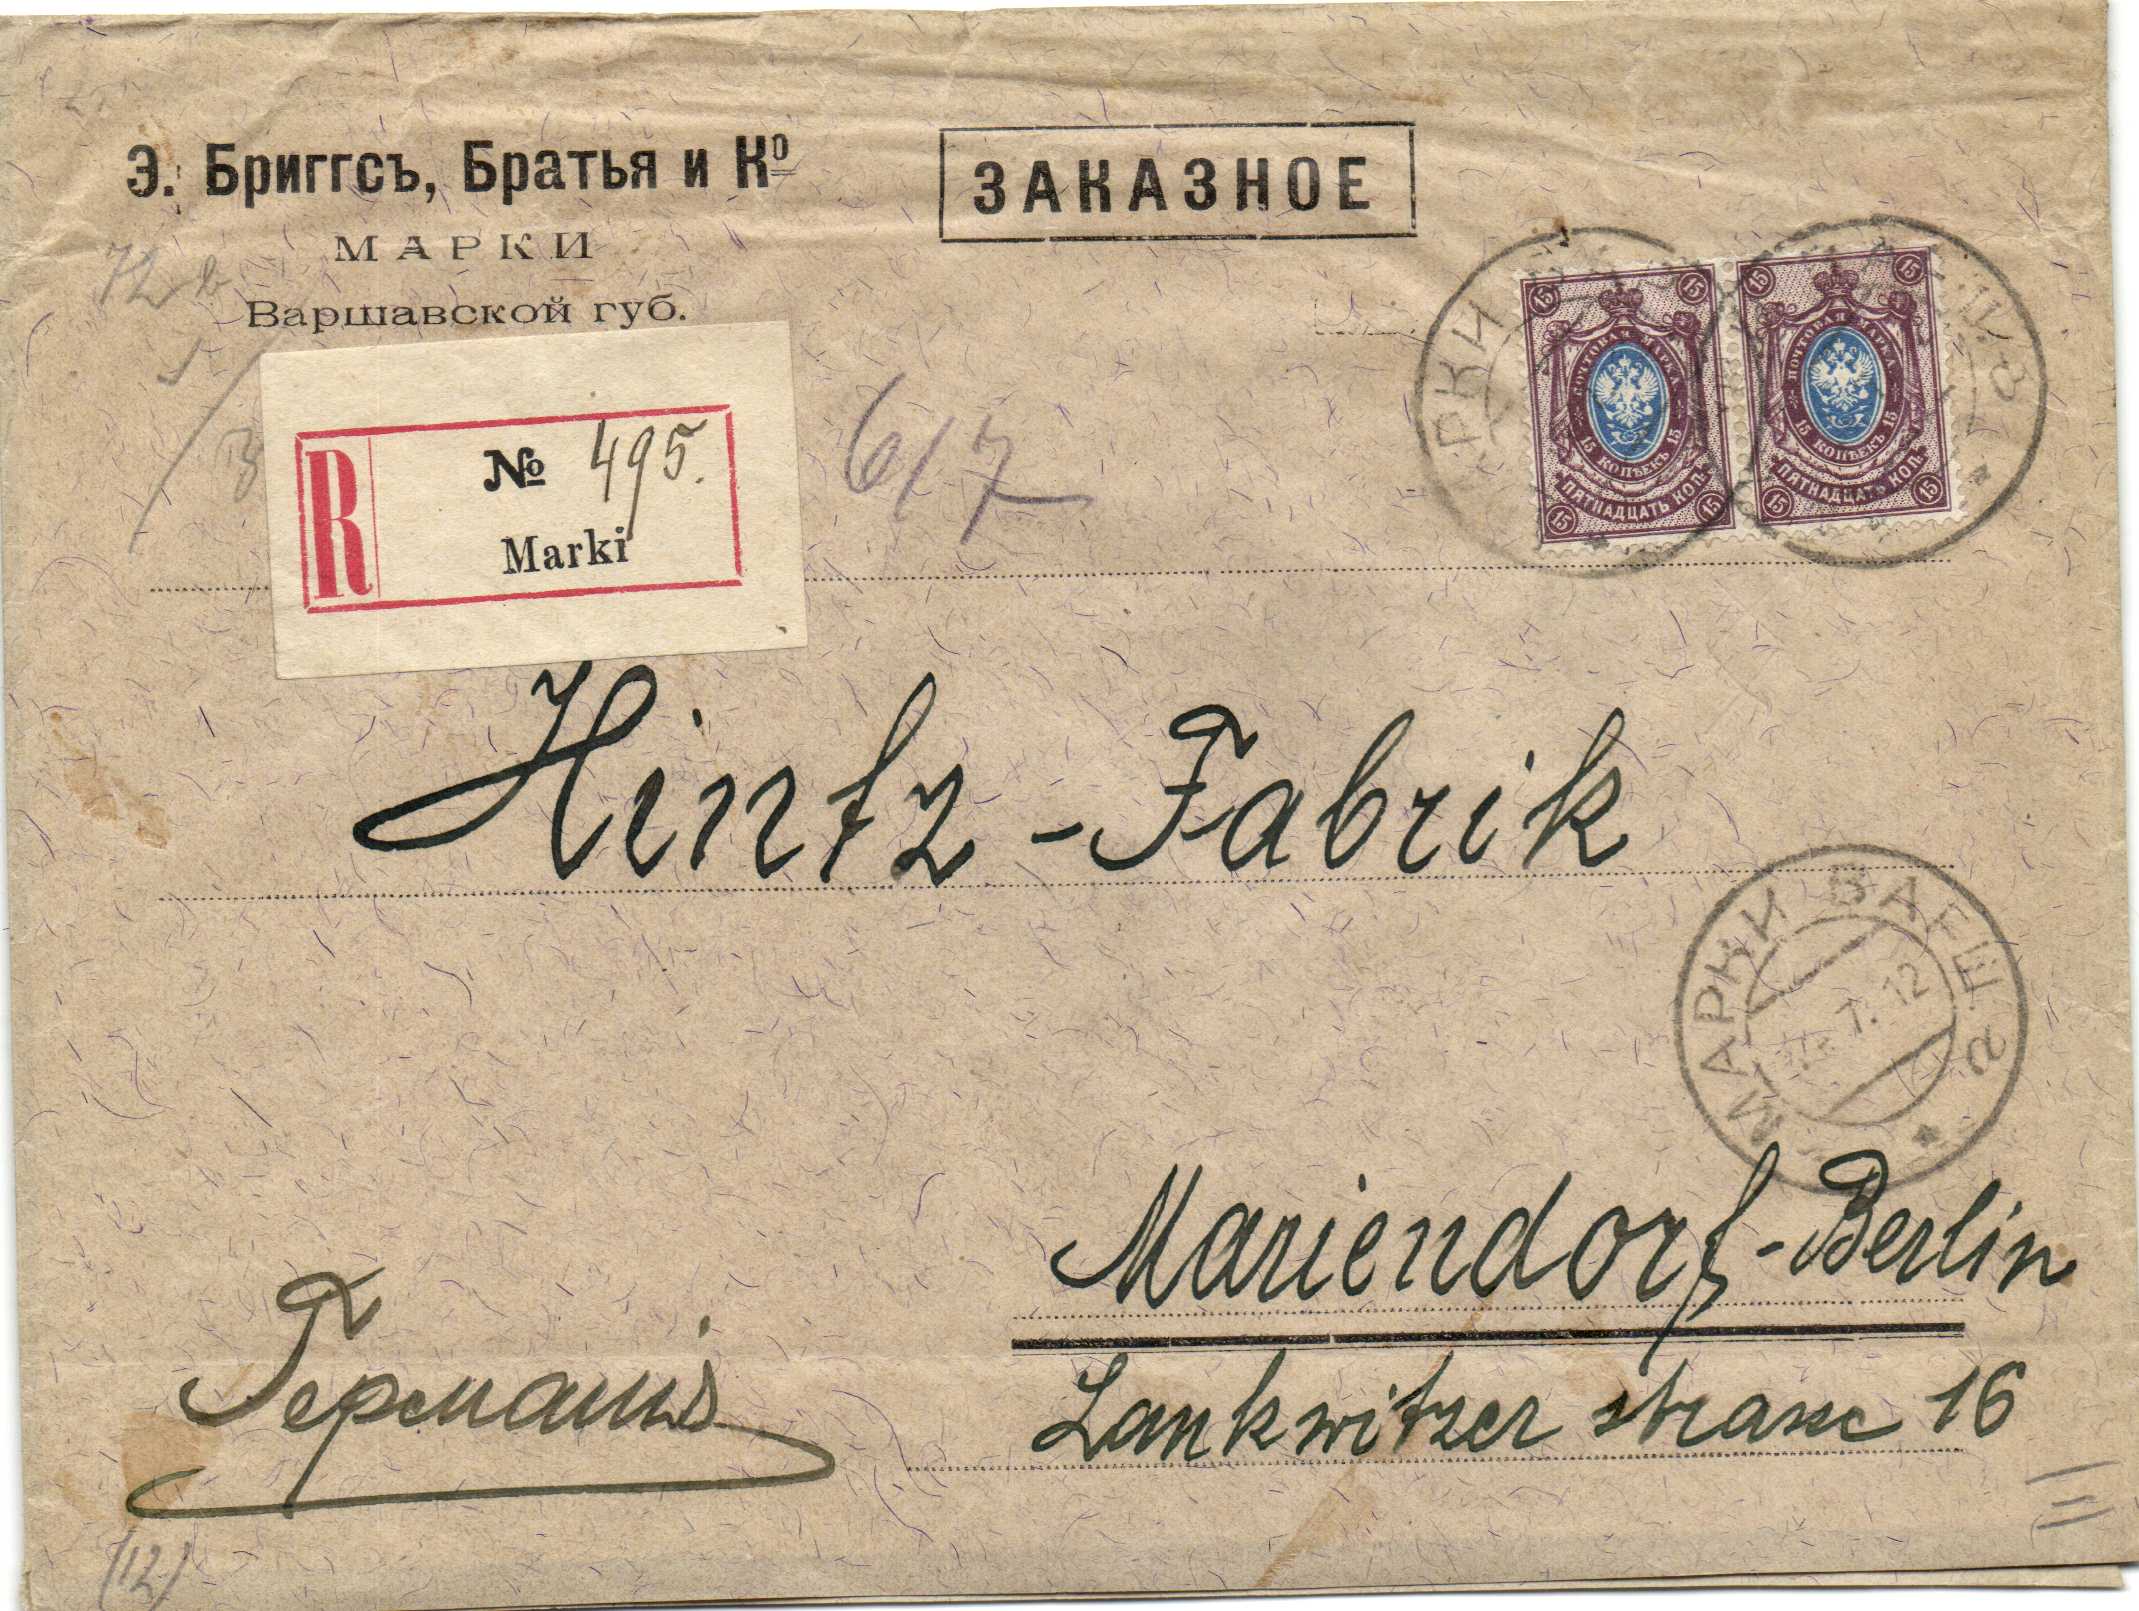 Э. Бриггсъ, Братья и Ко
ЗАКАЗНОЕ
МАРКИ
Варшавской губ.
72
R
№ 495.
Marki
617
15 15
ПОЧТОВАЯ МАРКА
15 КОПѢЕКЪ 15
ПЯТНАДЦАТЬ КОП.
15 15
15 15
ПОЧТОВАЯ МАРКА
15 КОПѢЕКЪ 15
ПЯТНАДЦАТЬ КОП.
15 15
Hintz-Fabrik
МАРКИ ВАРШ a
7.12
Mariendorf-Berlin
Германія
Lankwitzer strasse 16
(12)